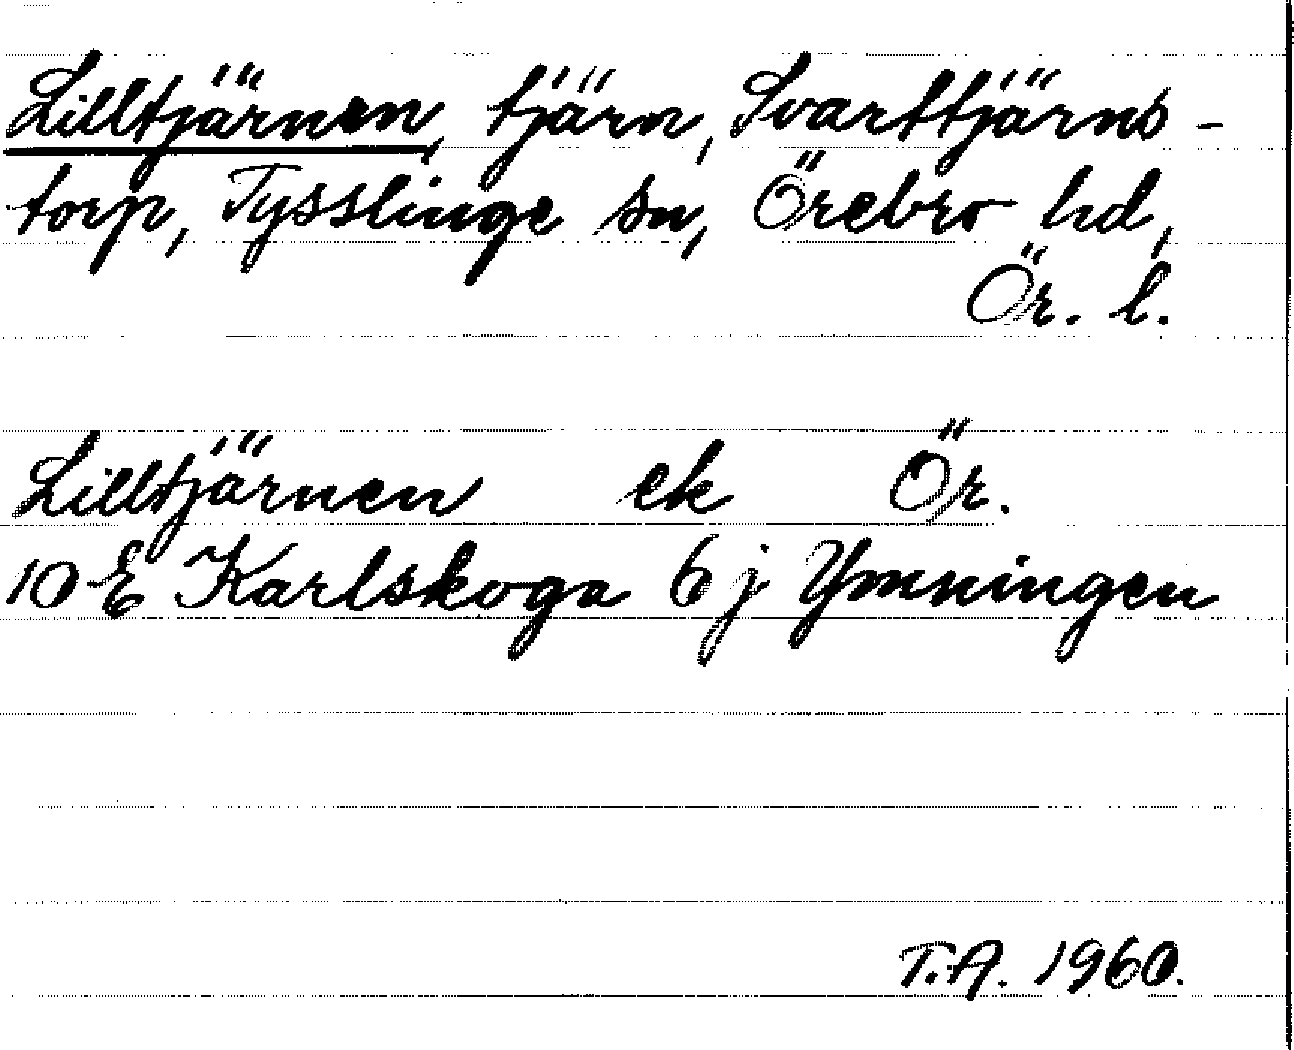 Lilltjärnen, tjärn, Svarttjärns-
torp, Tysslinge sn, Örebro hd,
Ör. l.
Lilltjärnen ek Ör.
10 E Karlskoga 6 j Ymningen
T.A. 1960.